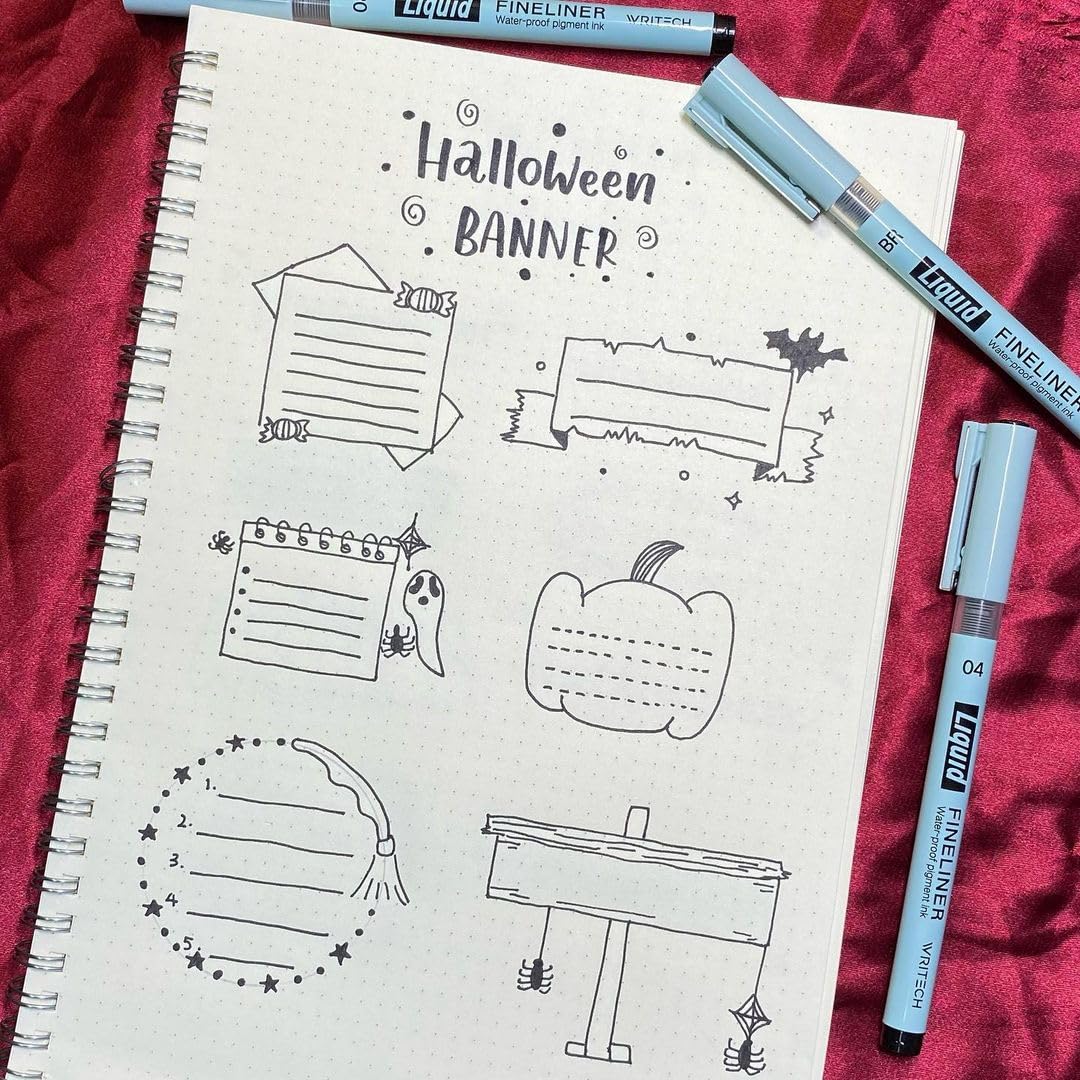 Liquid FINELINER
Water-proof pigment ink
WRITECH
Halloween
BANNER
BR
Liquid FINELINER
Water-proof pigment ink
1.
2.
3.
4
5.
04
Liquid FINELINER
Water-proof pigment ink
WRITECH